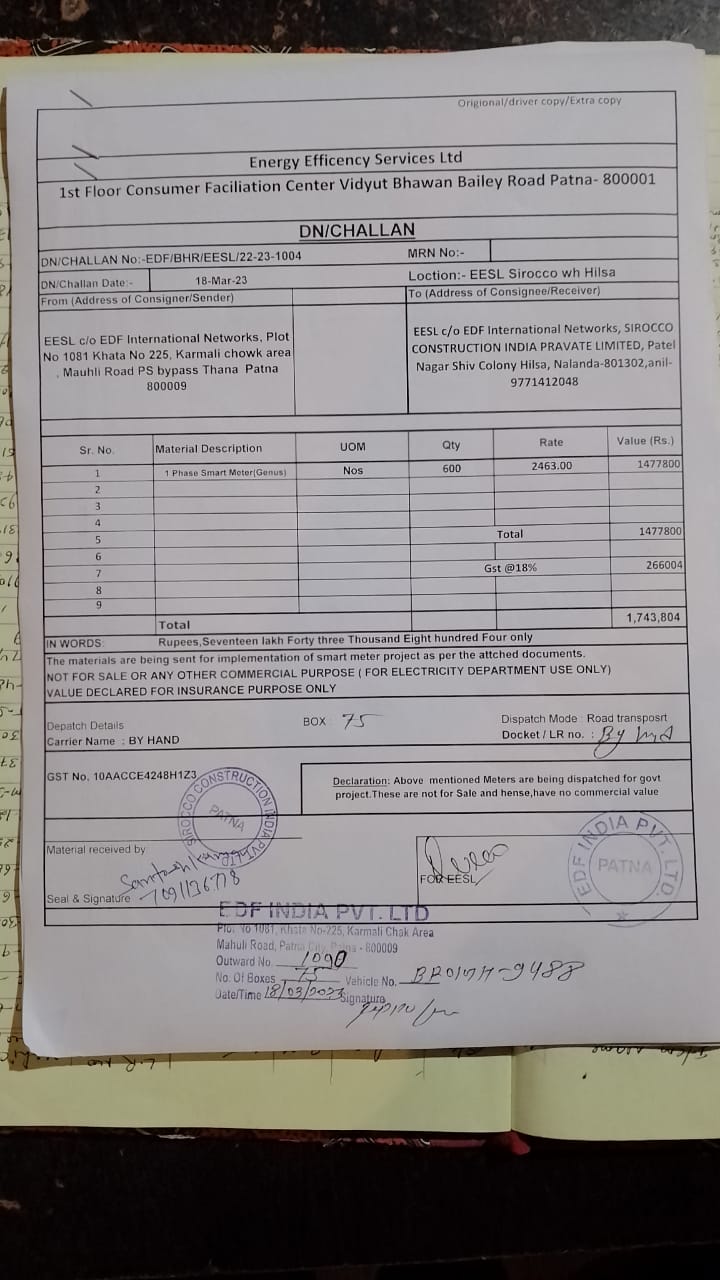 Origional/driver copy/Extra copy
Energy Efficency Services Ltd
1st Floor Consumer Faciliation Center Vidyut Bhawan Bailey Road Patna- 800001
DN/CHALLAN
DN/CHALLAN No:-EDF/BHR/EESL/22-23-1004 MRN No:-
DN/Challan Date:- 18-Mar-23 Loction:- EESL Sirocco wh Hilsa
From (Address of Consigner/Sender) To (Address of Consignee/Receiver)
EESL c/o EDF International Networks, Plot
No 1081 Khata No 225, Karmali chowk area
, Mauhli Road PS bypass Thana Patna
800009
EESL c/o EDF International Networks, SIROCCO
CONSTRUCTION INDIA PRAVATE LIMITED, Patel
Nagar Shiv Colony Hilsa, Nalanda-801302,anil-
9771412048
Sr. No. Material Description UOM Qty Rate Value (Rs.)
1 1 Phase Smart Meter(Genus) Nos 600 2463.00 1477800
2
3
4
5 Total 1477800
6
7 Gst @18% 266004
8
9
Total 1,743,804
IN WORDS: Rupees,Seventeen lakh Forty three Thousand Eight hundred Four only
The materials are being sent for implementation of smart meter project as per the attched documents.
NOT FOR SALE OR ANY OTHER COMMERCIAL PURPOSE ( FOR ELECTRICITY DEPARTMENT USE ONLY)
VALUE DECLARED FOR INSURANCE PURPOSE ONLY
Depatch Details BOX : 75 Dispatch Mode : Road transposrt
Carrier Name : BY HAND Docket / LR no. : By
GST No. 10AACCE4248H1Z3
Declaration: Above mentioned Meters are being dispatched for govt
project.These are not for Sale and hense,have no commercial value
SIROCCO CONSTRUCTION INDIA PVT. LTD.
PATNA
EDF INDIA PVT. LTD.
PATNA
Material received by
Seal & Signature
FOR EESL
EDF INDIA PVT. LTD
Plot No 1081, Khata No-225, Karmali Chak Area
Mahuli Road, Patna City, Patna - 800009
Outward No. 1090
No. Of Boxes 75 Vehicle No.
Date/Time 18/03/2023 Signature